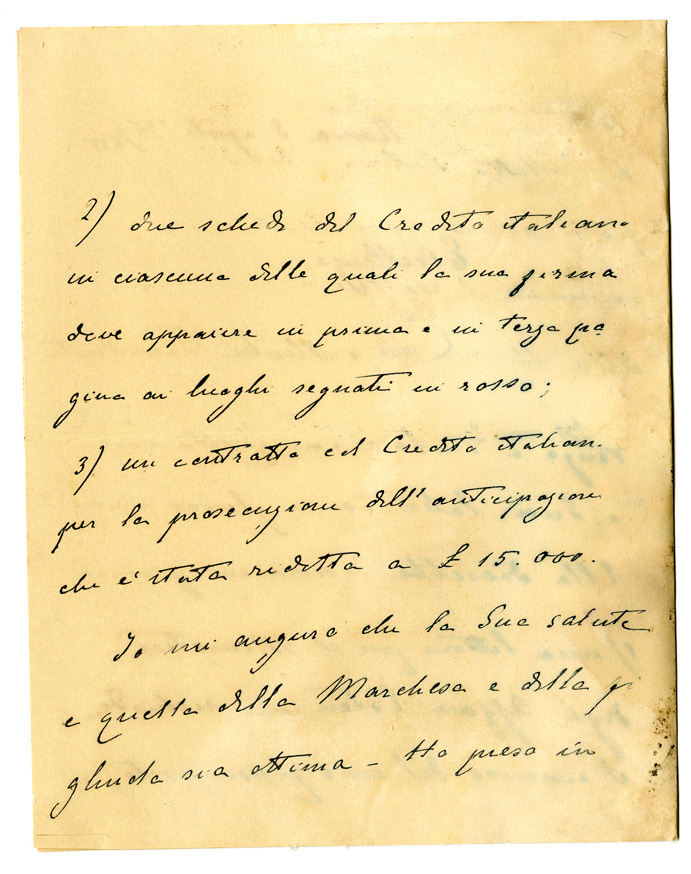 2) due schede del Credito italiano
in ciascuna delle quali la sua firma
deve apparire in prima e in terza pa
gina ai luoghi segnati in rosso;
3) un contratto col Credito italiano
per la prosecuzione dell'anticipazione
che è stata ridotta a £ 15.000.
Io mi auguro che la Sua salute
e quella della Marchesa e della fi
gliuola sia ottima - Ho preso in